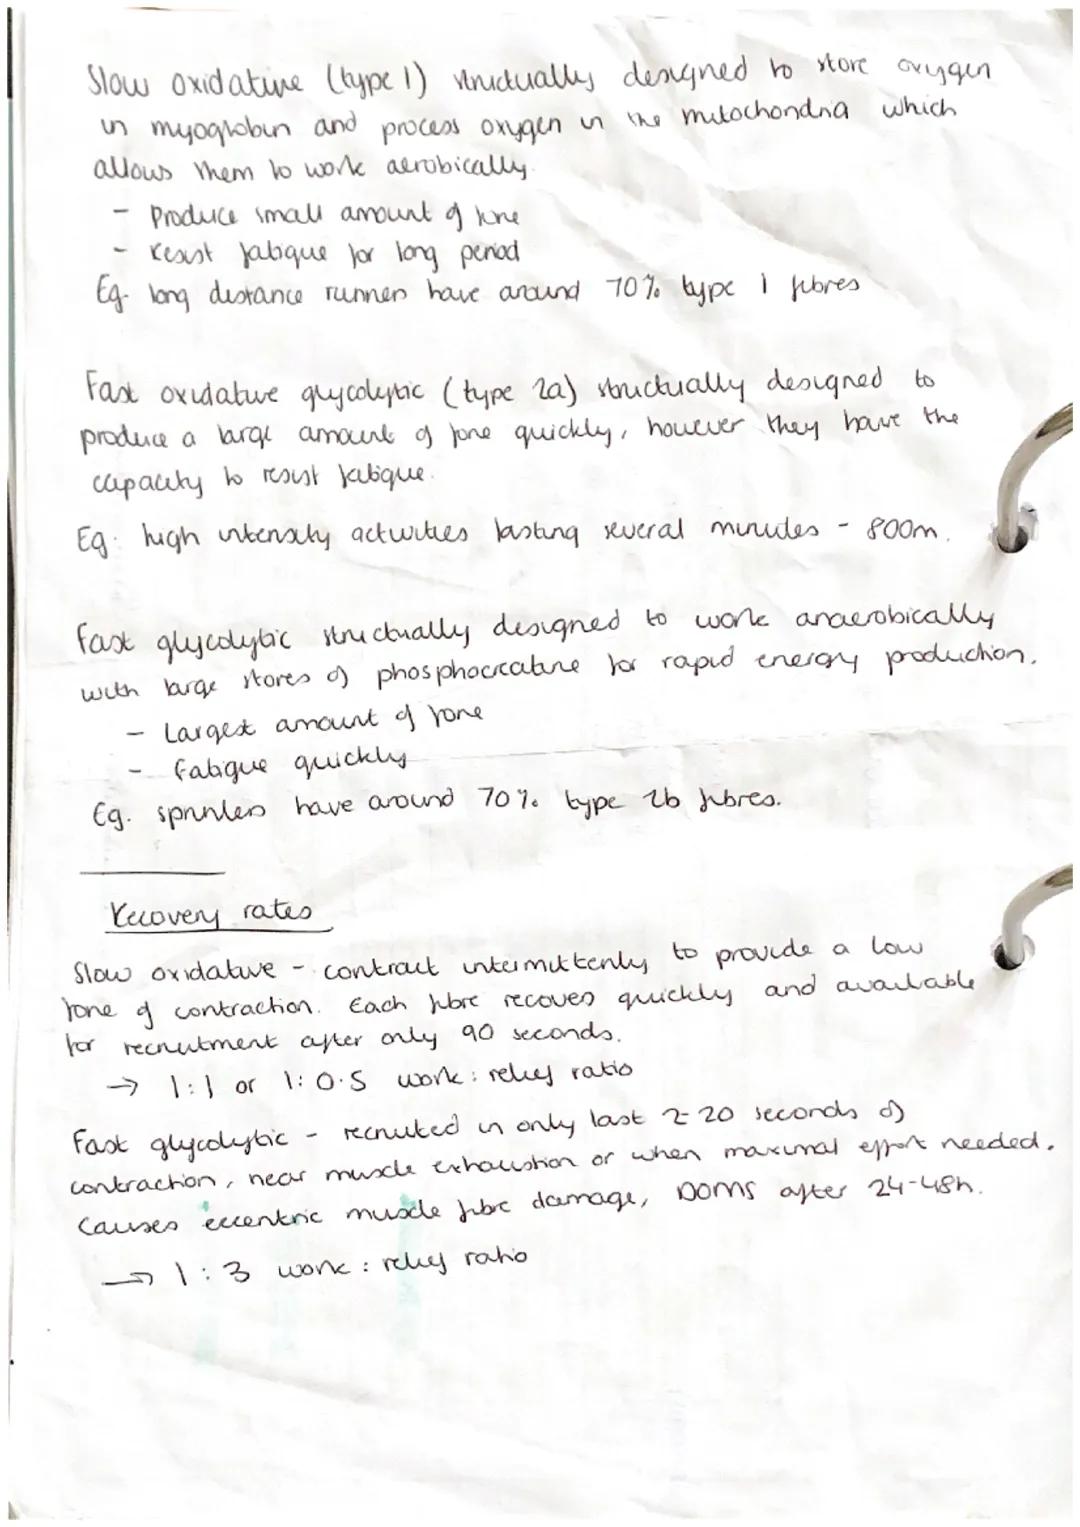 Slow oxidative (type 1) structually designed to store oxygen
in myoglobin and process oxygen in the mitochondria which
allows them to work aerobically.
- Produce small amount of force
- Resist fatigue for long period
Eg. long distance runners have around 70% type 1 fibres
Fast oxidative glycolytic (type 2a) structually designed to
produce a large amount of force quickly, however they have the
capacity to resist fatigue.
Eg. high intensity activities lasting several minutes - 800m.
Fast glycolytic structually designed to work anaerobically
with large stores of phosphocreatine for rapid energy production.
- Largest amount of force
- Fatigue quickly
Eg. sprinters have around 70% type 2b fibres.
Recovery rates
Slow oxidative - contract intermittenly to provide a low
force of contraction. Each fibre recoves quickly and available
for recruitment after only 90 seconds.
→ 1:1 or 1:0.5 work : relief ratio
Fast glycolytic - recruited in only last 2-20 seconds of
contraction, near muscle exhaustion or when maximal effort needed.
Causes eccentric muscle fibre damage, DOMS after 24-48h.
→ 1:3 work : relief ratio